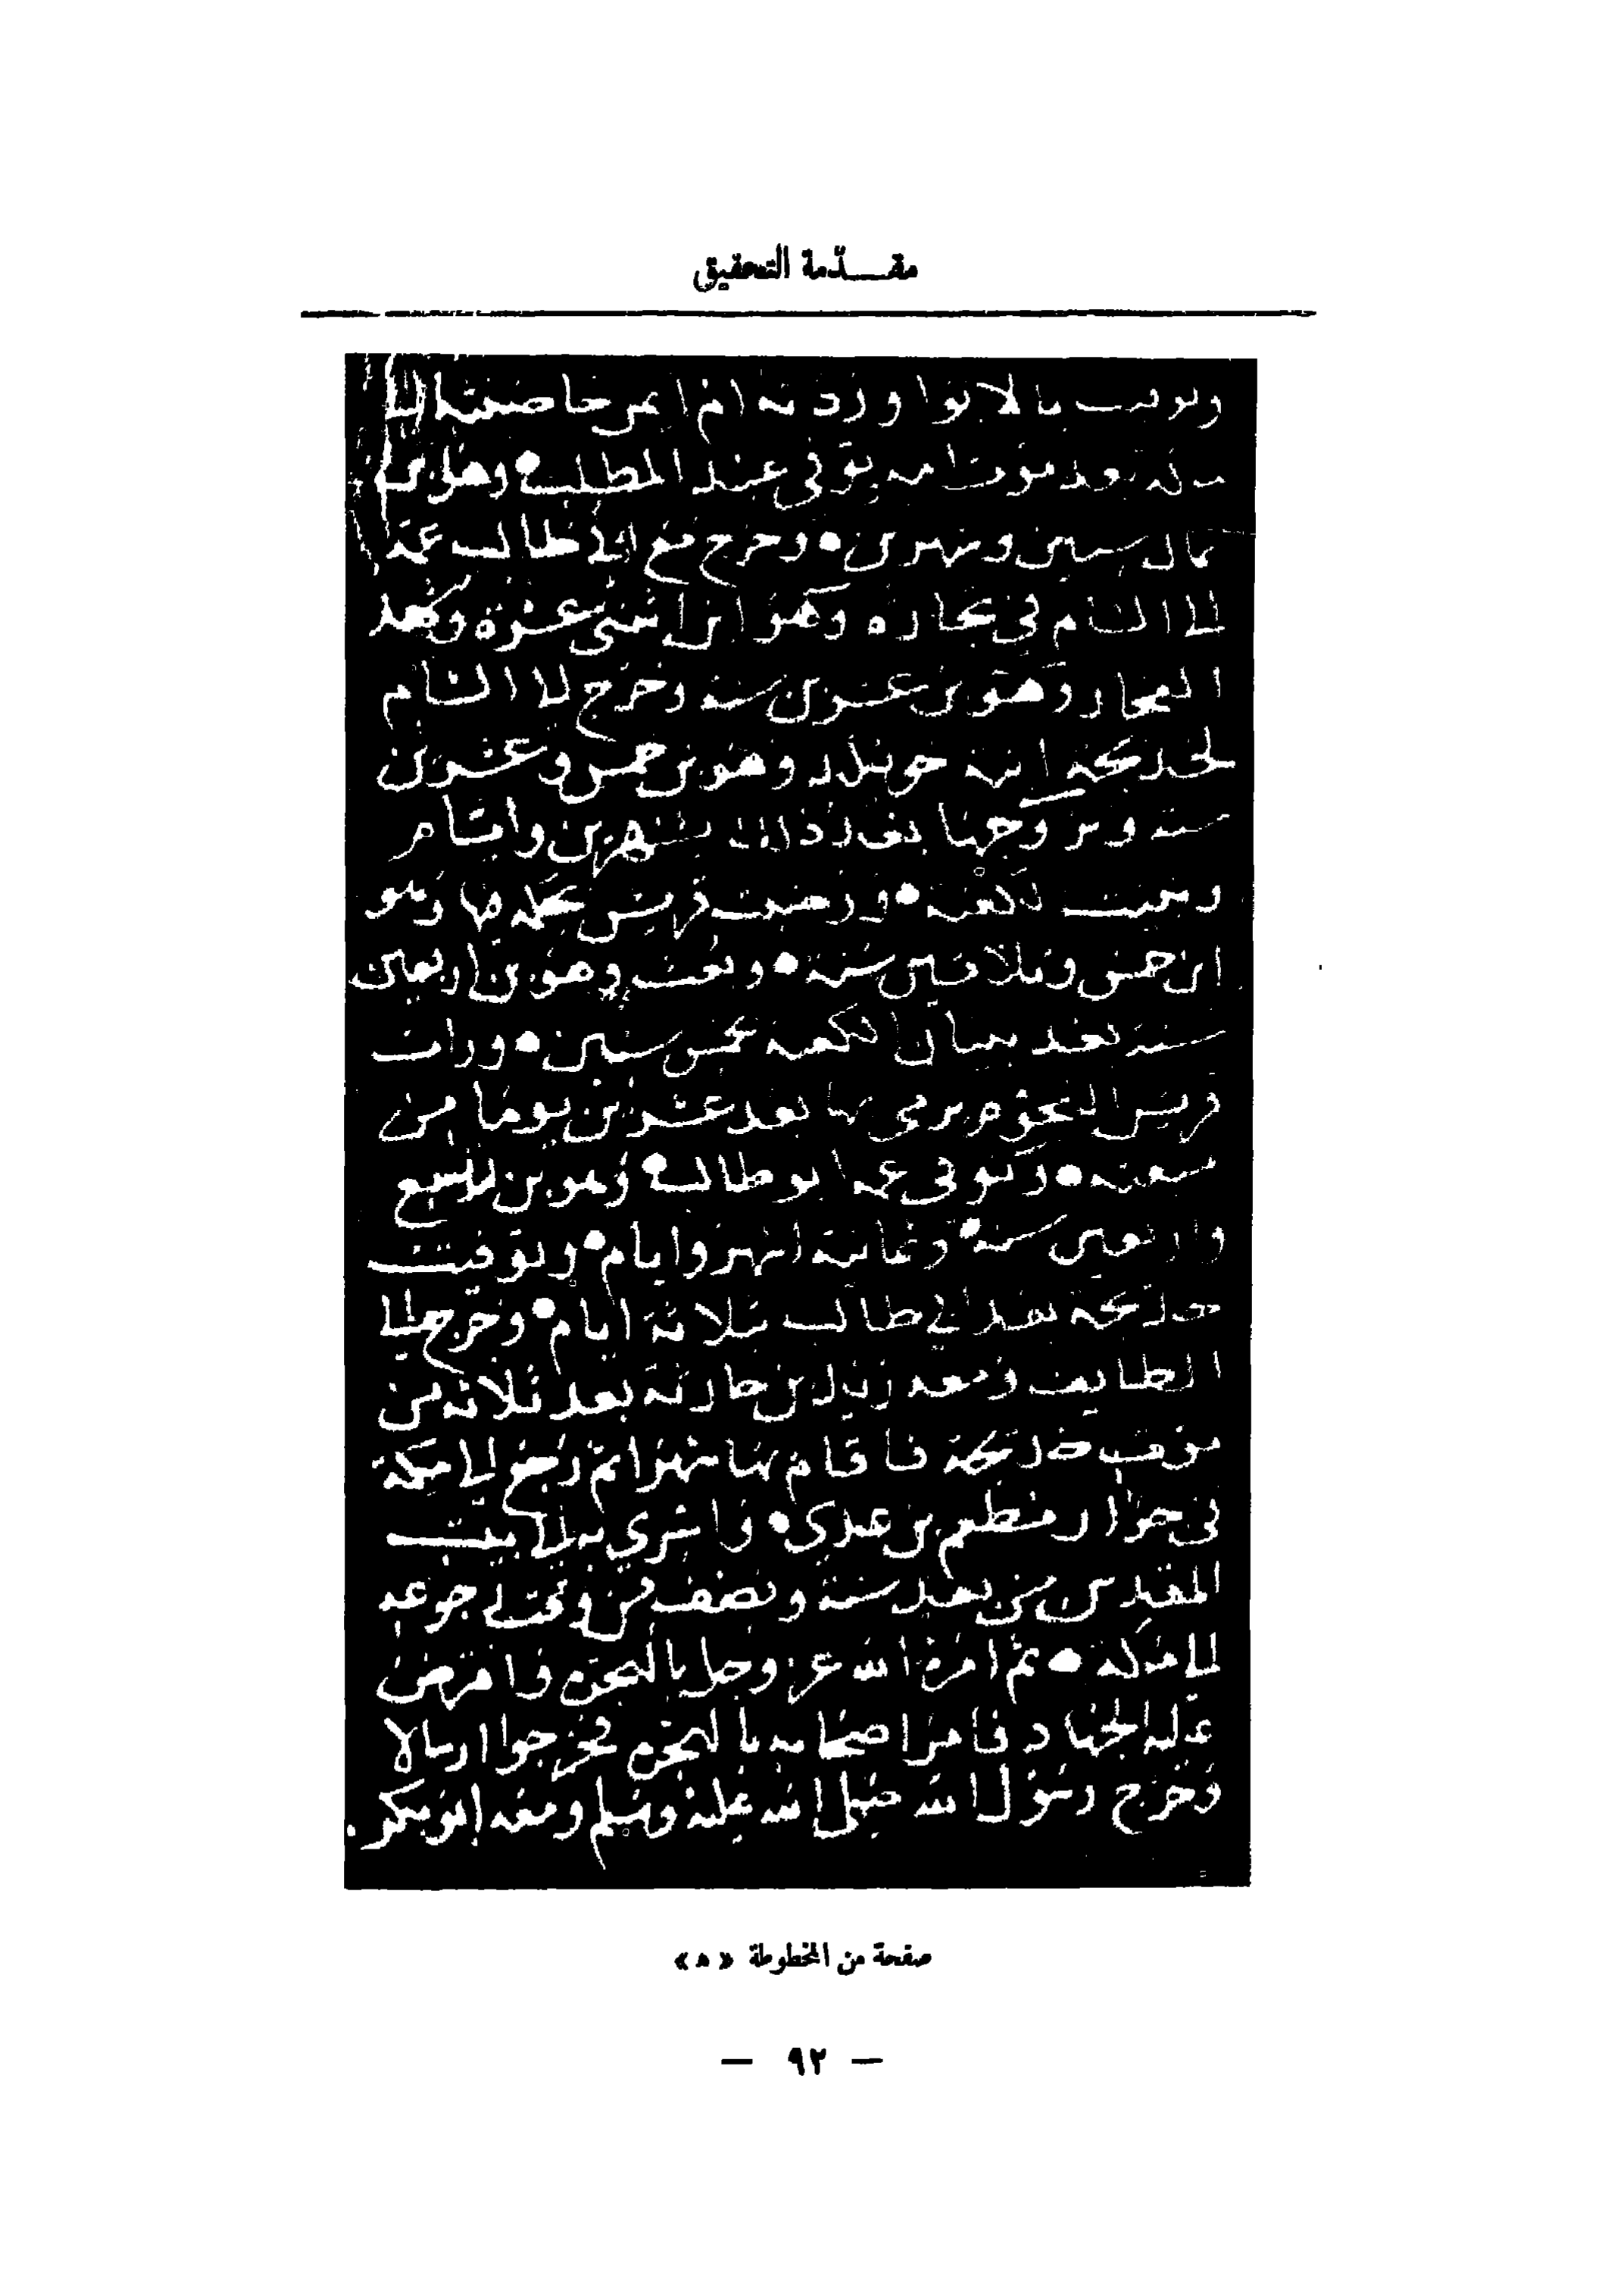 مقـــدّمة التحقيق
وتوفيت بالابوا وردته ام ايمن حاضنته الى
مكه بعد موت امه توفي عبد المطلب وهو بن
ثمان سنين وشهرين وخرج مع ابي طالب عمه
الى الشام في تجاره وهو ابن اثنتي عشرة وشهد
الفجار وهو بن عشرين سنه وخرج الى الشام
لخديجه ابنة خويلد وهو بن خمس وعشرين
سنه وتزوجها بعد ذلك بشهرين وايام
وبنيت الكعبه ورضيت قريش بحكمه فيها وهو
ابن خمس وثلاثين سنه وبعث وهو بن اربعين
سنه بعد بنيان الكعبه بخمس سنين ورات
قريش النجوم يرمى بها بعد عشرين يوما من
مبعثه وتوفي عمه ابو طالب وهو بن تسع
واربعين سنه وثمانية اشهر وايام وتوفيت
خديجه بعد ابي طالب بثلاثة ايام وخرج الى
الطايف ومعه زيد بن حارثة بعد ثلاثه من
موت خديجه فاقام بها شهرا ثم رجع الى مكة
في جوار مطعم بن عدي واسري به الى بيت
المقدس من بعد سنة ونصف من وقت رجوعه
الى مكه ثم امره الله عز وجل بالهجره وافترض
عليه الجهاد فامر اصحابه بالهجره فخرجوا ارسالا
وخرج رسول الله صلى الله عليه وسلم ومعه ابو بكر
صفحة من المخطوطة « هـ »
— ٩٢ —